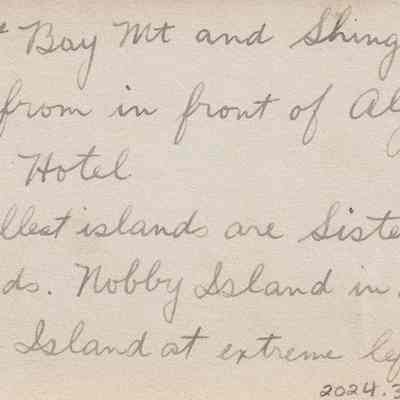 Bay Mt and Shing
from in front of Al
Hotel
llest islands are Siste
ds. Nobby Island in
Island at extreme lef
2024.3